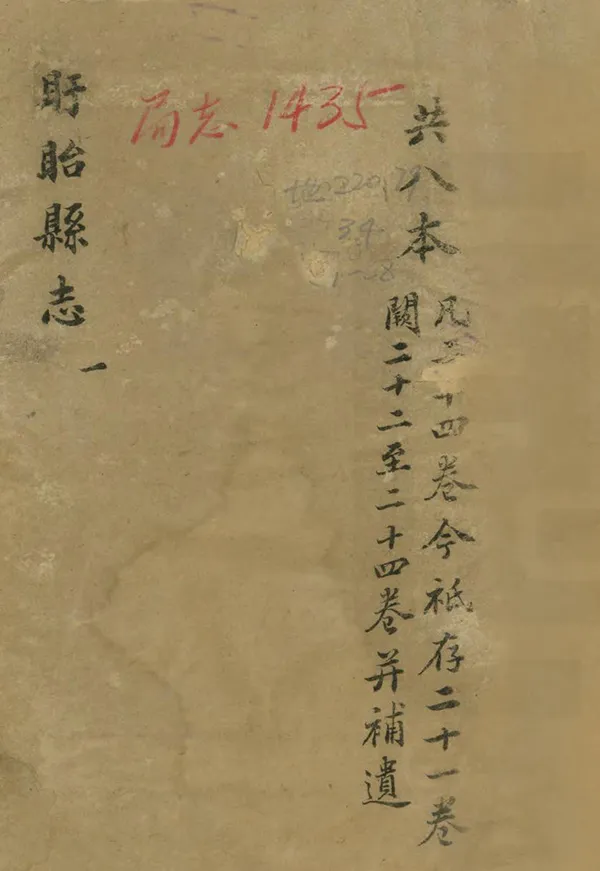 共八本
凡二十四卷今祗存二十一卷
闕二十二至二十四卷并補遺
局志 1435
地220.79
34
1-8
盱眙縣志
一